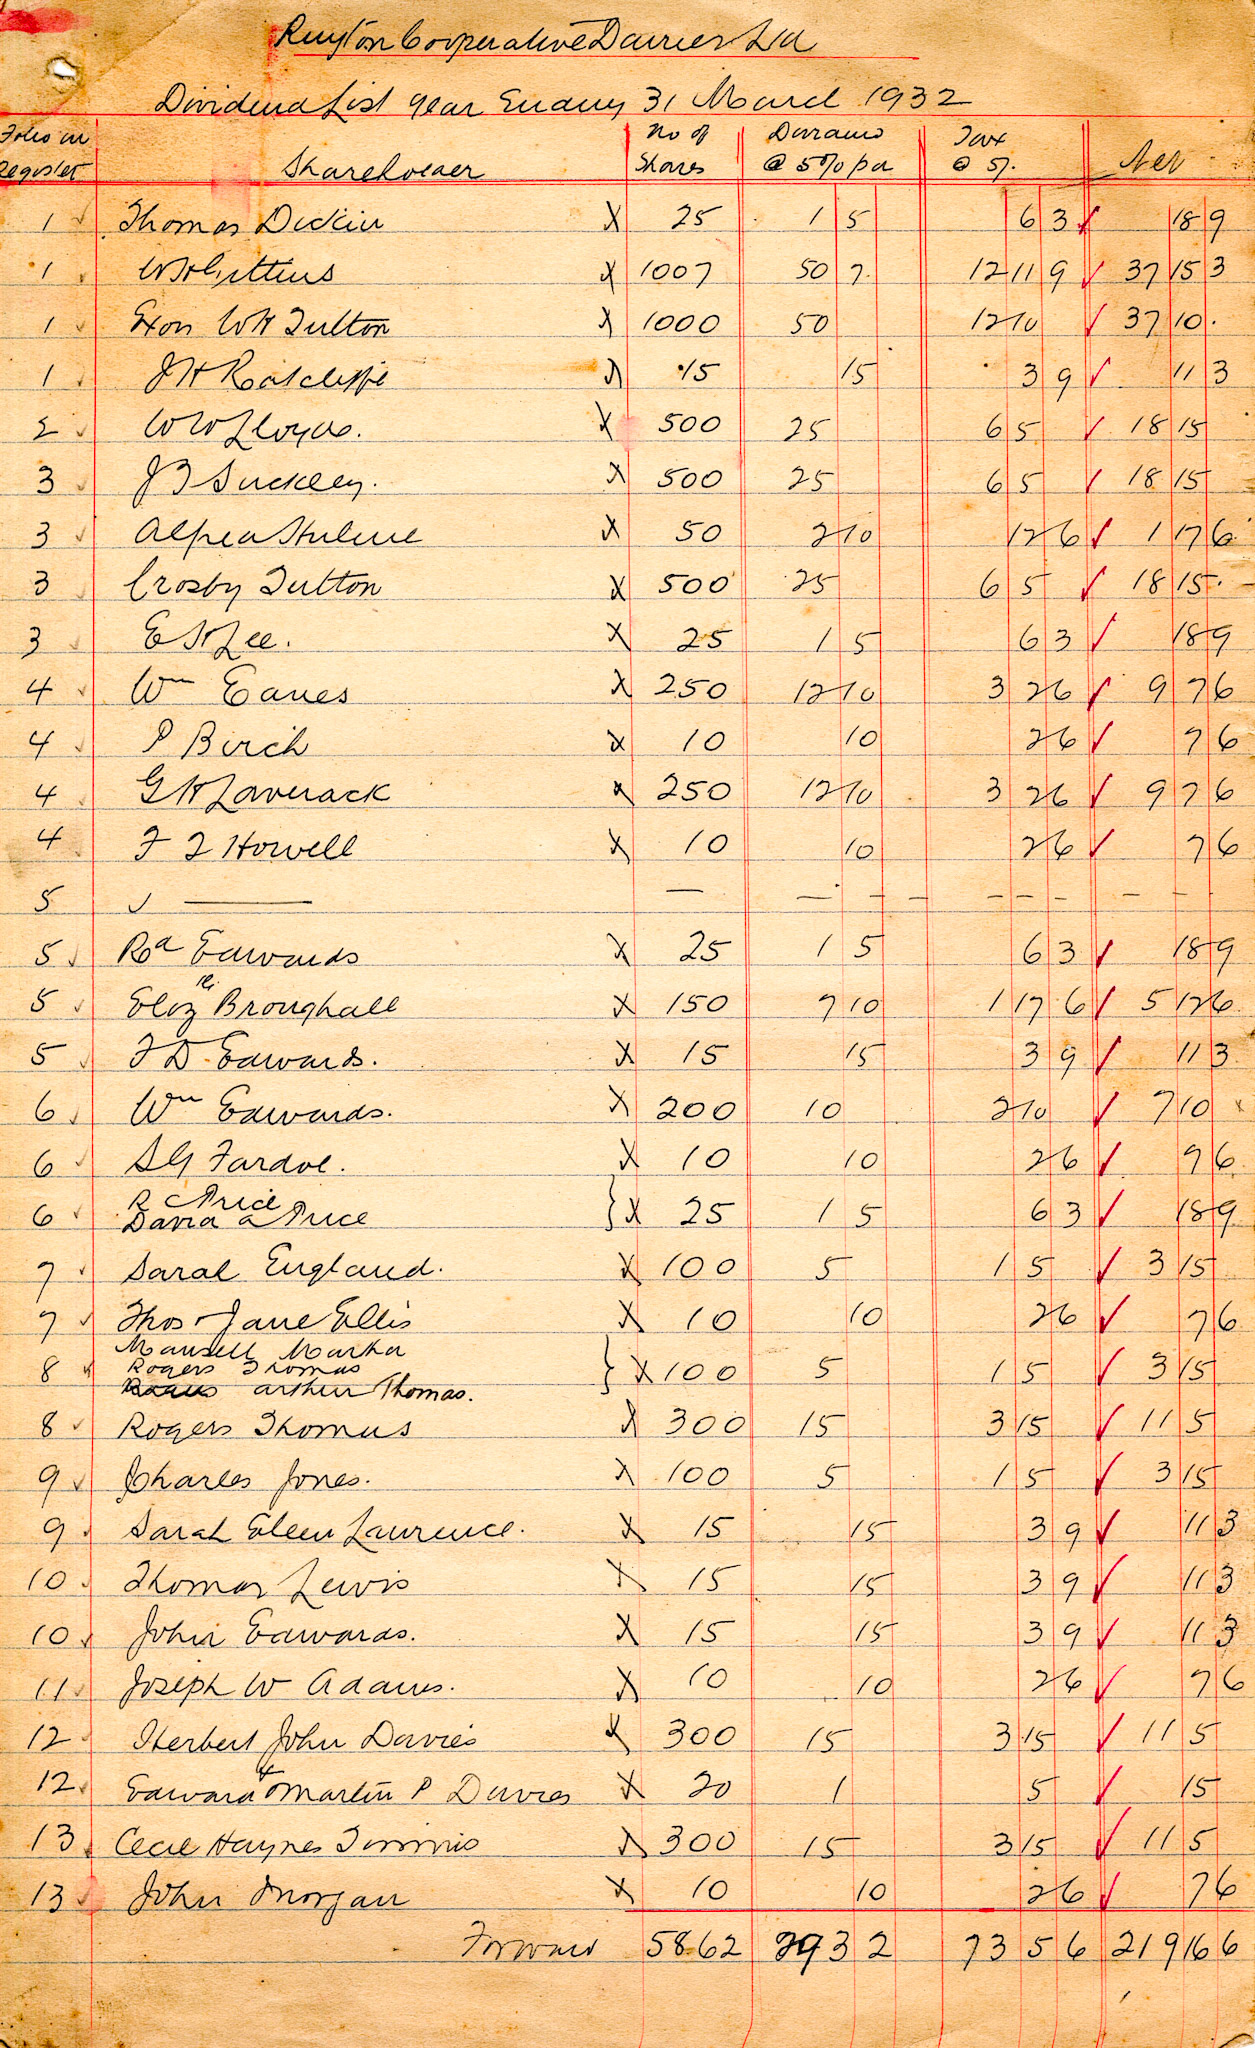 Ruyton Cooperative Dairies Ltd
Dividend List year Ending 31 March 1932
Folio in Register Shareholder No of Shares Dividend @ 5% pa Tax @ 5/- Net
1 Thomas Dickin X 25 1 5 6 3 18 9
1 W H Gittins X 1007 50 7 12 11 9 37 15 3
1 Exors W H Tutton X 1000 50 12 10 37 10
1 J H Ratcliffe X 15 15 3 9 11 3
2 W W Lloyds. X 500 25 6 5 18 15
3 J B Suckley. X 500 25 6 5 18 15
3 Alfred Hulme X 50 2 10 12 6 1 17 6
3 Crosby Tutton X 500 25 6 5 18 15
3 E H Lee. X 25 1 5 6 3 18 9
4 Wm Eaves X 250 12 10 3 2 6 9 7 6
4 P Birch X 10 10 2 6 7 6
4 G H Laverack X 250 12 10 3 2 6 9 7 6
4 F T Howell X 10 10 2 6 7 6
5 — — — - - - - - - - -
5 Rd Edwards X 25 1 5 6 3 18 9
5 Elizth Broughall X 150 7 10 1 17 6 5 12 6
5 F D Edwards. X 15 15 3 9 11 3
6 Wm Edwards. X 200 10 2 10 7 10 x
6 S G Fardoe. X 10 10 2 6 7 6
6 R C Price
David A Price } X 25 1 5 6 3 18 9
7 Sarah England. X 100 5 1 5 3 15
7 Thos & Jane Ellis X 10 10 2 6 7 6
Mansell Martha
8 Rogers Thomas } X 100 5 1 5 3 15
Arthur Thomas.
8 Rogers Thomas X 300 15 3 15 11 5
9 Charles Jones. X 100 5 1 5 3 15
9 Sarah Eleen Lawrence. X 15 15 3 9 11 3
10 Thomas Lewis X 15 15 3 9 11 3
10 John Edwards. X 15 15 3 9 11 3
11 Joseph W Adams. X 10 10 2 6 7 6
12 Herbert John Davies X 300 15 3 15 11 5
12 Edward & Martin P Davies X 20 1 5 15
13 Cecil Haynes Timmis X 300 15 3 15 11 5
13 John Morgan X 10 10 2 6 7 6
Forward 5862 293 2 73 5 6 219 16 6